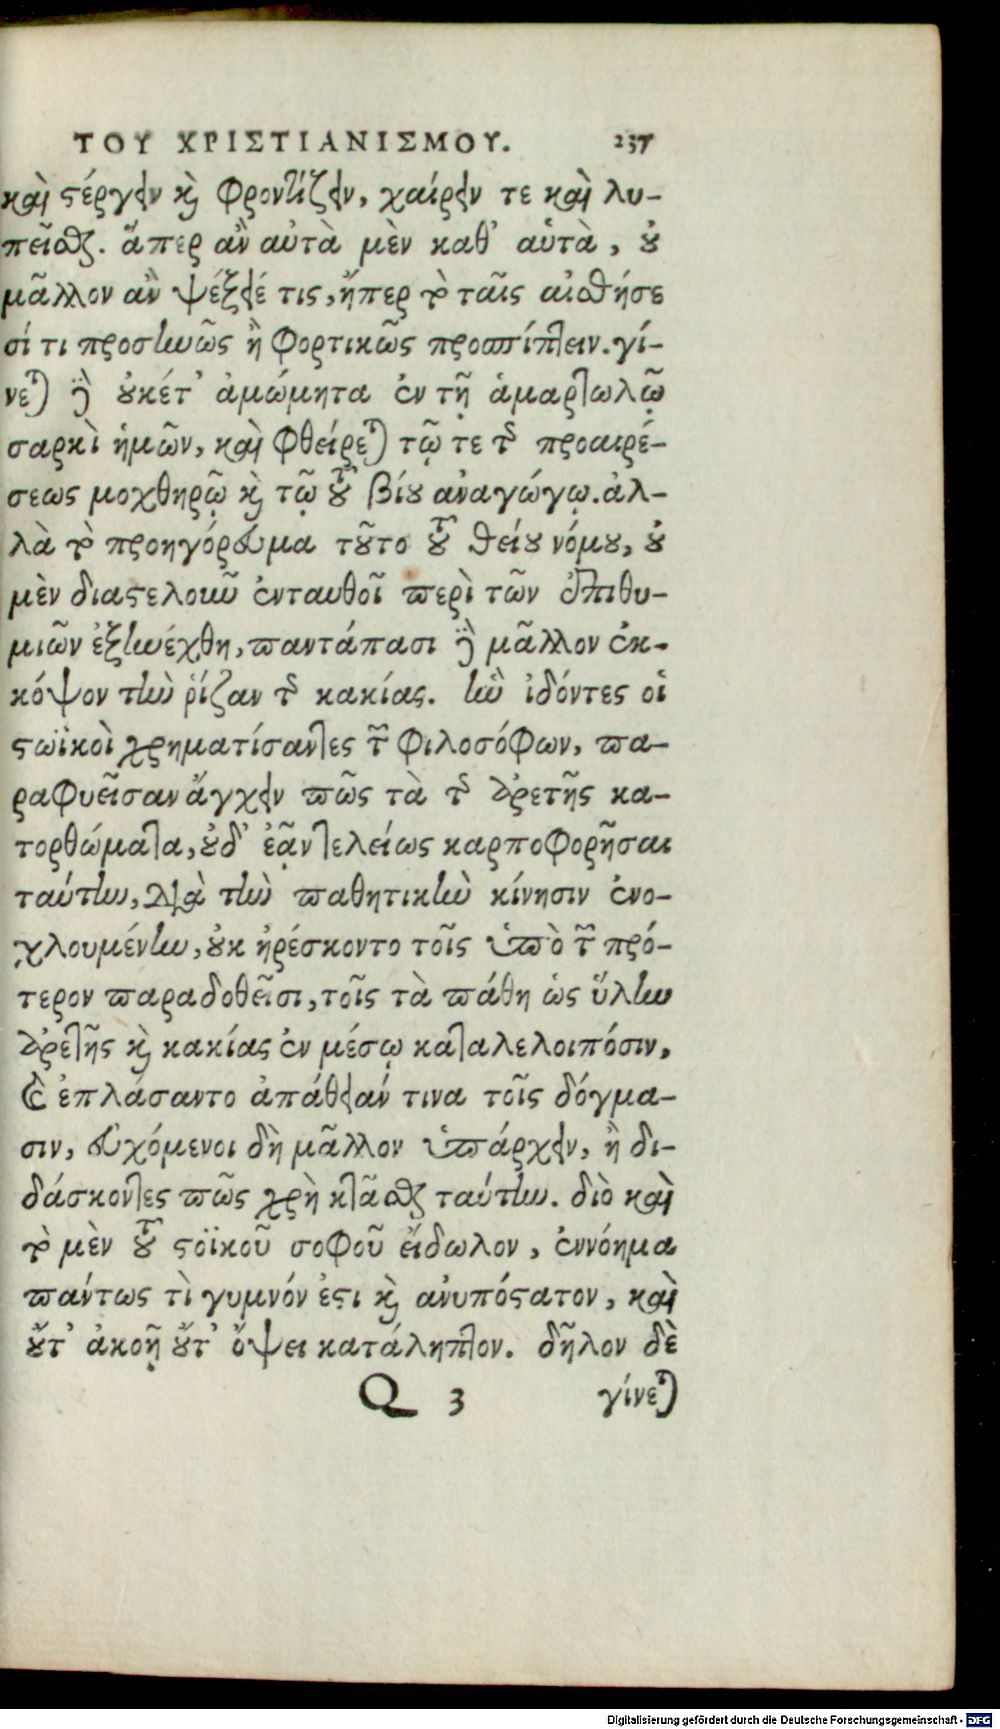 ΤΟΥ ΧΡΙΣΤΙΑΝΙΣΜΟΥ. 237
καὶ στέργειν καὶ φροντίζειν, χαίρειν τε καὶ λυ-
πεῖσθαι. ἅπερ ἂν αὐτὰ μὲν καθ' αὑτὰ, οὐ
μᾶλλον ἂν ψέξειέ τις, ἤπερ τὸ ταῖς αἰσθήσε
σί τι προσηνῶς ἢ φορτικῶς προσπίπτειν. γί-
νεται δὲ οὐκέτ' ἀμώμητα ἐν τῇ ἁμαρτωλῷ
σαρκὶ ἡμῶν, καὶ φθείρεται τῷ τε τῆς προαιρέ-
σεως μοχθηρῷ καὶ τῷ τοῦ βίου ἀναγώγῳ. ἀλ-
λὰ τὸ προηγόρευμα τοῦτο τοῦ θείου νόμου, οὐ
μὲν διαστελοῦν ἐνταυθοῖ περὶ τῶν ἐπιθυ-
μιῶν ἐξηνέχθη, παντάπασι δὲ μᾶλλον ἐκ-
κόψον τὴν ῥίζαν τῆς κακίας. ἣν ἰδόντες οἱ
στωϊκοὶ χρηματίσαντες τῶν φιλοσόφων, πα-
ραφυεῖσαν ἄγχειν πῶς τὰ τῆς ἀρετῆς κα-
τορθώματα, οὐδ' ἐᾷν τελείως καρποφορῆσαι
ταύτην, διὰ τὴν παθητικὴν κίνησιν ἐνο-
χλουμένην, οὐκ ἠρέσκοντο τοῖς ὑπὸ τῶν πρό-
τερον παραδοθεῖσι, τοῖς τὰ πάθη ὡς ὕλην
ἀρετῆς καὶ κακίας ἐν μέσῳ καταλελοιπόσιν,
καὶ ἐπλάσαντο ἀπάθειάν τινα τοῖς δόγμα-
σιν, εὐχόμενοι δὴ μᾶλλον ὑπάρχειν, ἢ δι-
δάσκοντες πῶς χρὴ κτᾶσθαι ταύτην. διὸ καὶ
τὸ μὲν τοῦ στοϊκοῦ σοφοῦ εἴδωλον, ἐννόημα
πάντως τὶ γυμνόν ἐστι καὶ ἀνυπόστατον, καὶ
οὔτ' ἀκοῇ οὔτ' ὄψει κατάληπτον. δῆλον δὲ
Q 3 γίνεται
Digitalisierung gefördert durch die Deutsche Forschungsgemeinschaft - DFG